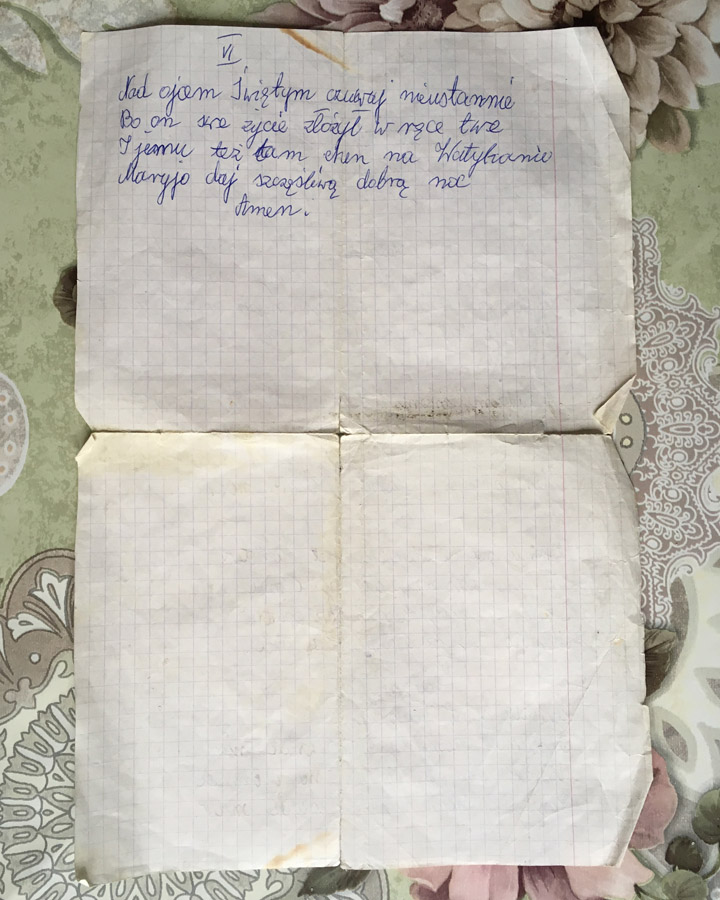 VI
Nad ojcem Świętym czuwaj nieustannie
Bo on swe życie złożył w ręce twe
I jemu też tam chen na Watykanie
Maryjo daj szczęśliwą dobrą noc
Amen.